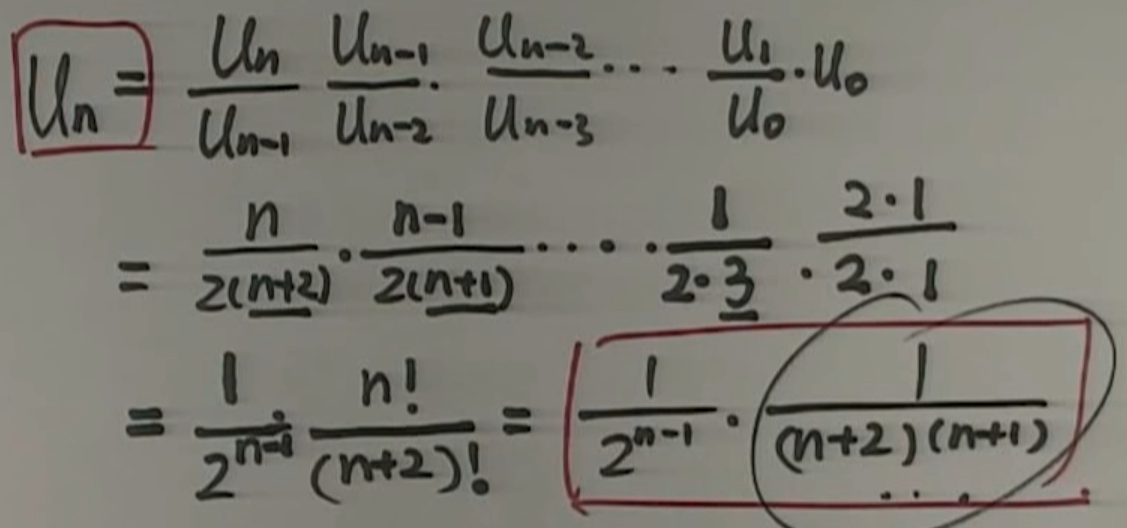 Uₙ = Uₙ/Uₙ₋₁ Uₙ₋₁/Uₙ₋₂ · Uₙ₋₂/Uₙ₋₃ ··· U₁/U₀ · U₀
= n/2(n+2) · (n-1)/2(n+1) ····· 1/2·3 · 2·1/2·1
= 1/2ⁿ⁻¹ · n!/(n+2)! = 1/2ⁿ⁻¹ · 1/(n+2)(n+1)